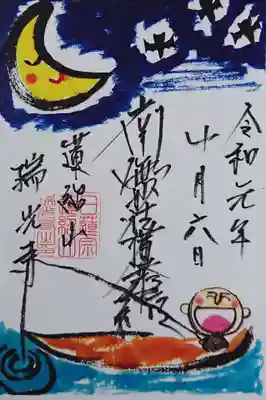 令和元年
十月六日
南無妙法蓮華経
瑞光寺
日蓮宗